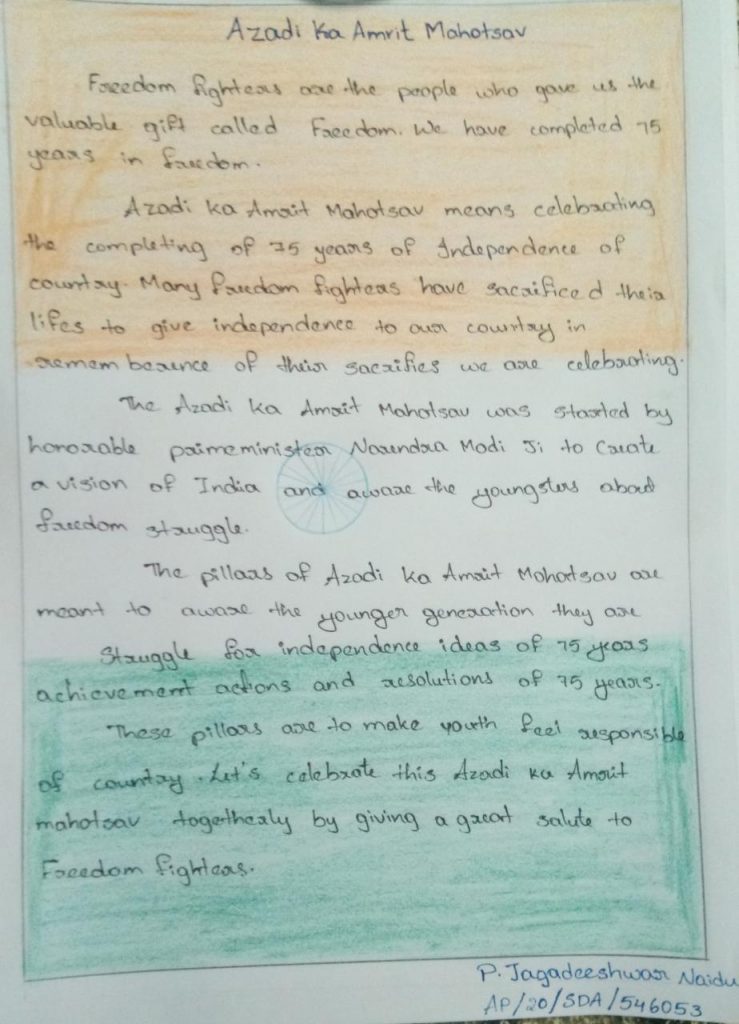 Azadi Ka Amrit Mahotsav
Freedom fighters are the people who gave us the
valuable gift called Freedom. We have completed 75
years in freedom.
Azadi ka Amrit Mahotsav means celebrating
the completing of 75 years of Independence of
country. Many freedom fighters have sacrificed their
lifes to give independence to our country in
rememberence of their sacrifies we are celebrating.
The Azadi ka Amrit Mahotsav was started by
honorable primeminister Narendra Modi Ji to Create
a vision of India and aware the youngsters about
freedom struggle.
The pillars of Azadi ka Amrit Mahotsav are
meant to aware the younger generation they are
Struggle for independence ideas of 75 years
achievement actions and resolutions of 75 years.
These pillars are to make youth feel responsible
of country. Let's celebrate this Azadi ka Amrit
mahotsav togetherly by giving a great salute to
Freedom fighters.
P. Jagadeeshwar Naidu
AP/20/SDA/546053